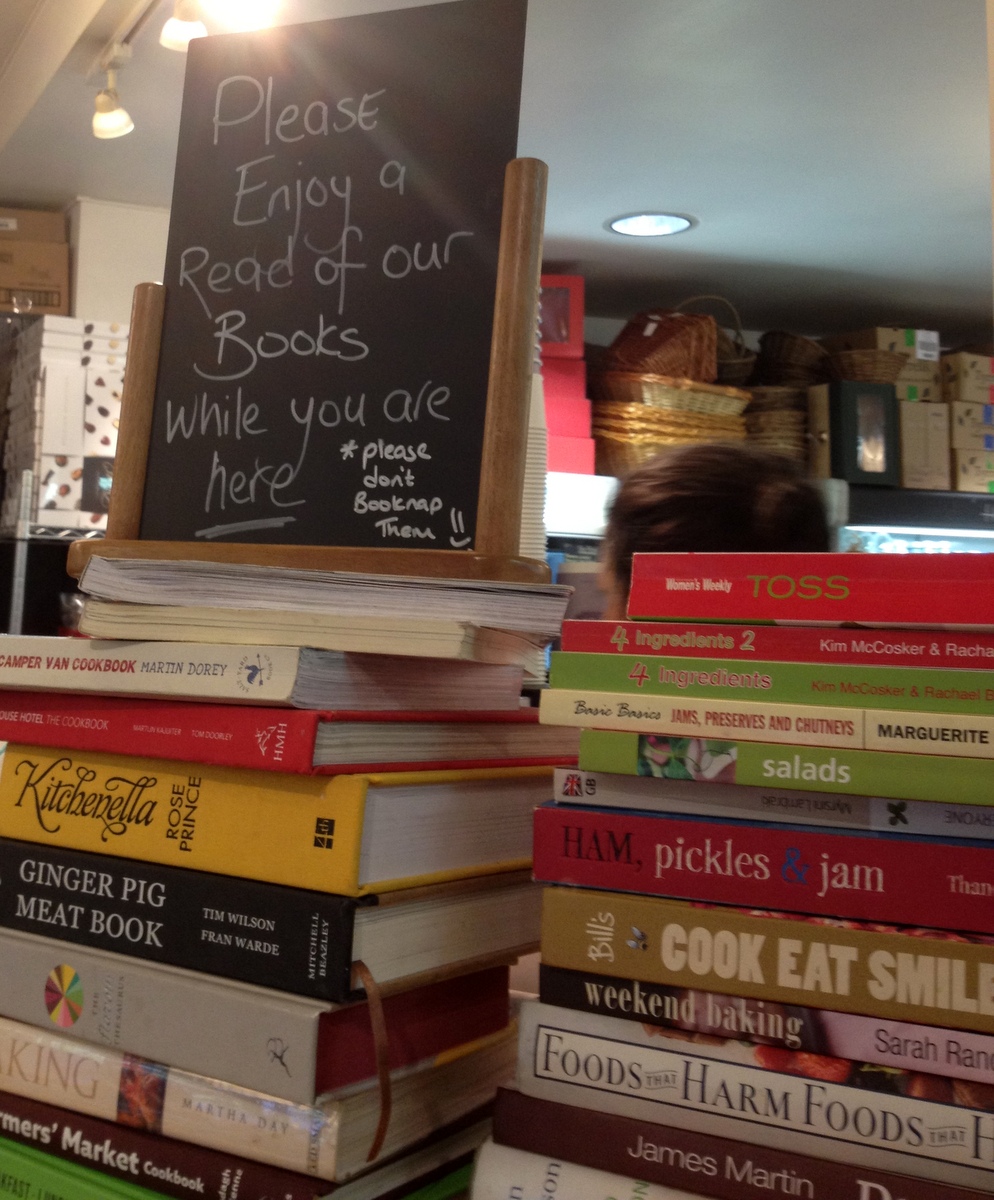 Please
Enjoy a
Read of our
Books
while you are
here
* please
don't
Booknap
Them !!
CAMPER VAN COOKBOOK MARTIN DOREY
HOTEL THE COOKBOOK
TOM DOORLEY
HMH
Kitchenella
ROSE
PRINCE
4th
GINGER PIG
MEAT BOOK
TIM WILSON
FRAN WARDE
MITCHELL
BEAZLEY
THE
flavour
THESAURUS
AKING
MARTHA DAY
rmers' Market Cookbook
Women's Weekly TOSS
4 Ingredients 2 Kim McCosker & Racha
4 Ingredients Kim McCosker & Rachael B
Basic Basics JAMS, PRESERVES AND CHUTNEYS MARGUERITE
salads
GB
Myrsini Lambraki
RYONE
HAM, pickles & jam
Than
Bill's
COOK EAT SMILE
weekend baking
Sarah Ran
FOODS THAT HARM FOODS THAT H
James Martin